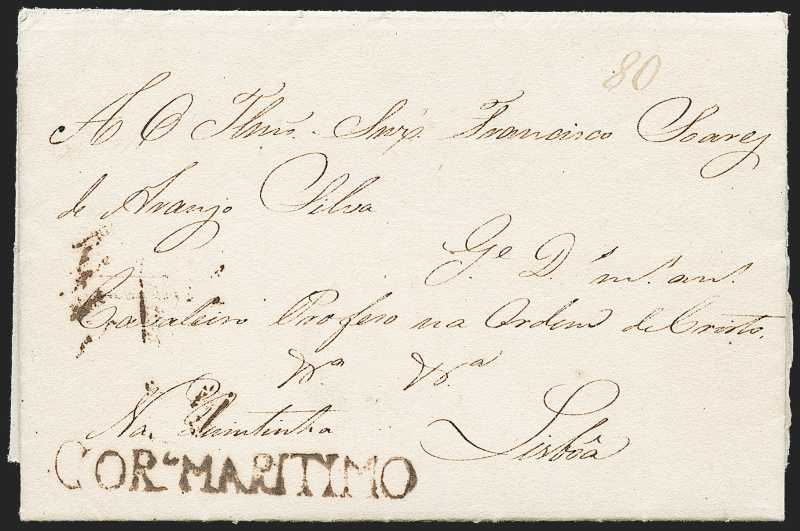 80
A O Illmo. Snr. Francisco Soares
de Araujo Silva
Ge. D. ms. ans.
Cavaleiro Profeso na Ordem de Cristo.
Na. Quintinha
Lisbôa
COR.º MARITIMO